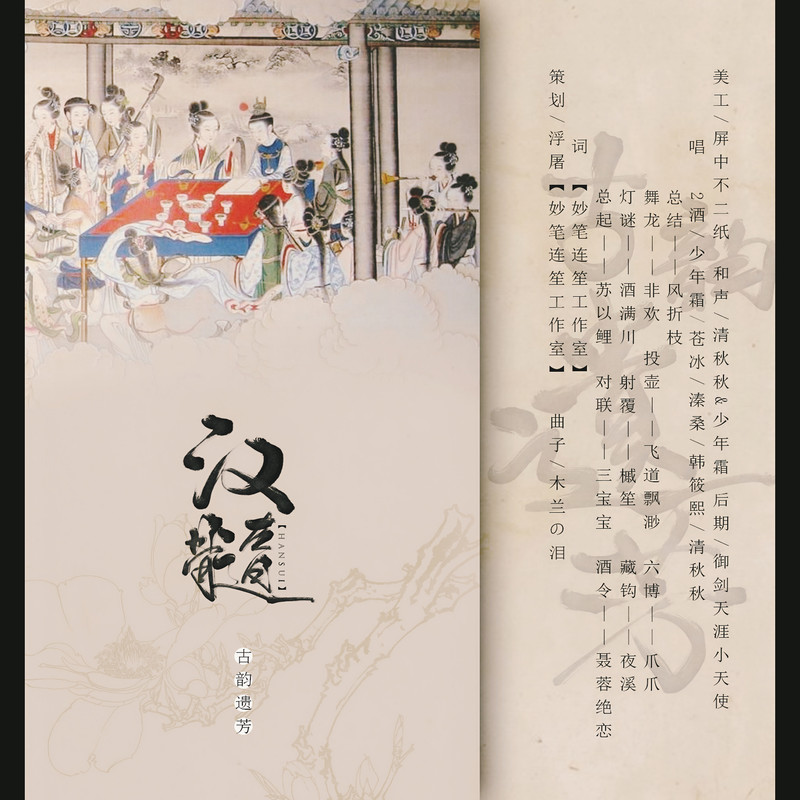 汉髓
【HANSUI】
古韵遗芳
策划/浮屠【妙笔连笙工作室】 曲子/木兰の泪
词【妙笔连笙工作室】
总起——苏以鲤 对联——三宝宝 酒令——聂蓉绝恋
灯谜——酒满川 射覆——槭笙 藏钩——夜溪
舞龙——非欢 投壶——飞道飘渺 六博——爪爪
总结——风折枝
唱 2酒/少年霜/苍冰/溱桑/韩筱熙/清秋秋
美工/屏中不二纸 和声/清秋秋&少年霜 后期/御剑天涯小天使
古韵遗芳